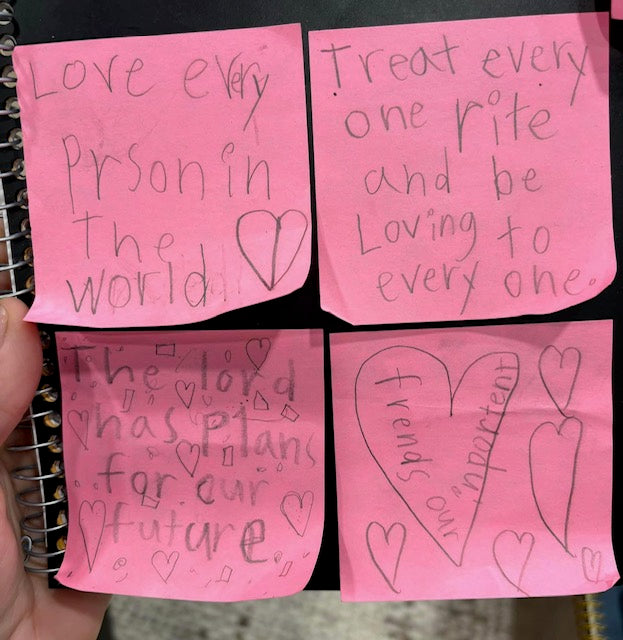 Love every
Prson in
The
world
Treat every
one rite
and be
Loving to
every one.
The lord
has plans
for our
future
frends our inportent